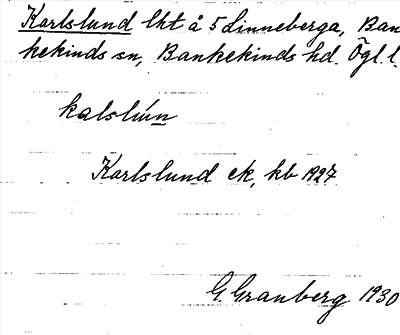 Karlslund lht å 5 Linneberga, Ban
kekinds sn, Bankekinds hd. Ögl. l.
kalslún
Karlslund ek, kb 1927
G. Granberg 1930